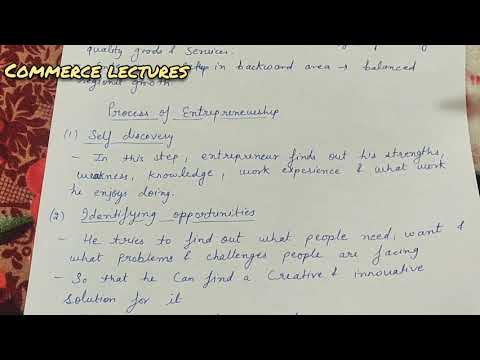 quality goods & services.
COMMERCE LECTURES
in backward area → balanced
regional growth.
Process of Entrepreneurship
(1) Self discovery
- In this step, entrepreneur finds out his strengths,
weakness, knowledge, work experience & what work
he enjoys doing.
(2) Identifying opportunities
- He tries to find out what people need, want &
what problems & challenges people are facing
- So that he can find a creative & innovative
solution for it